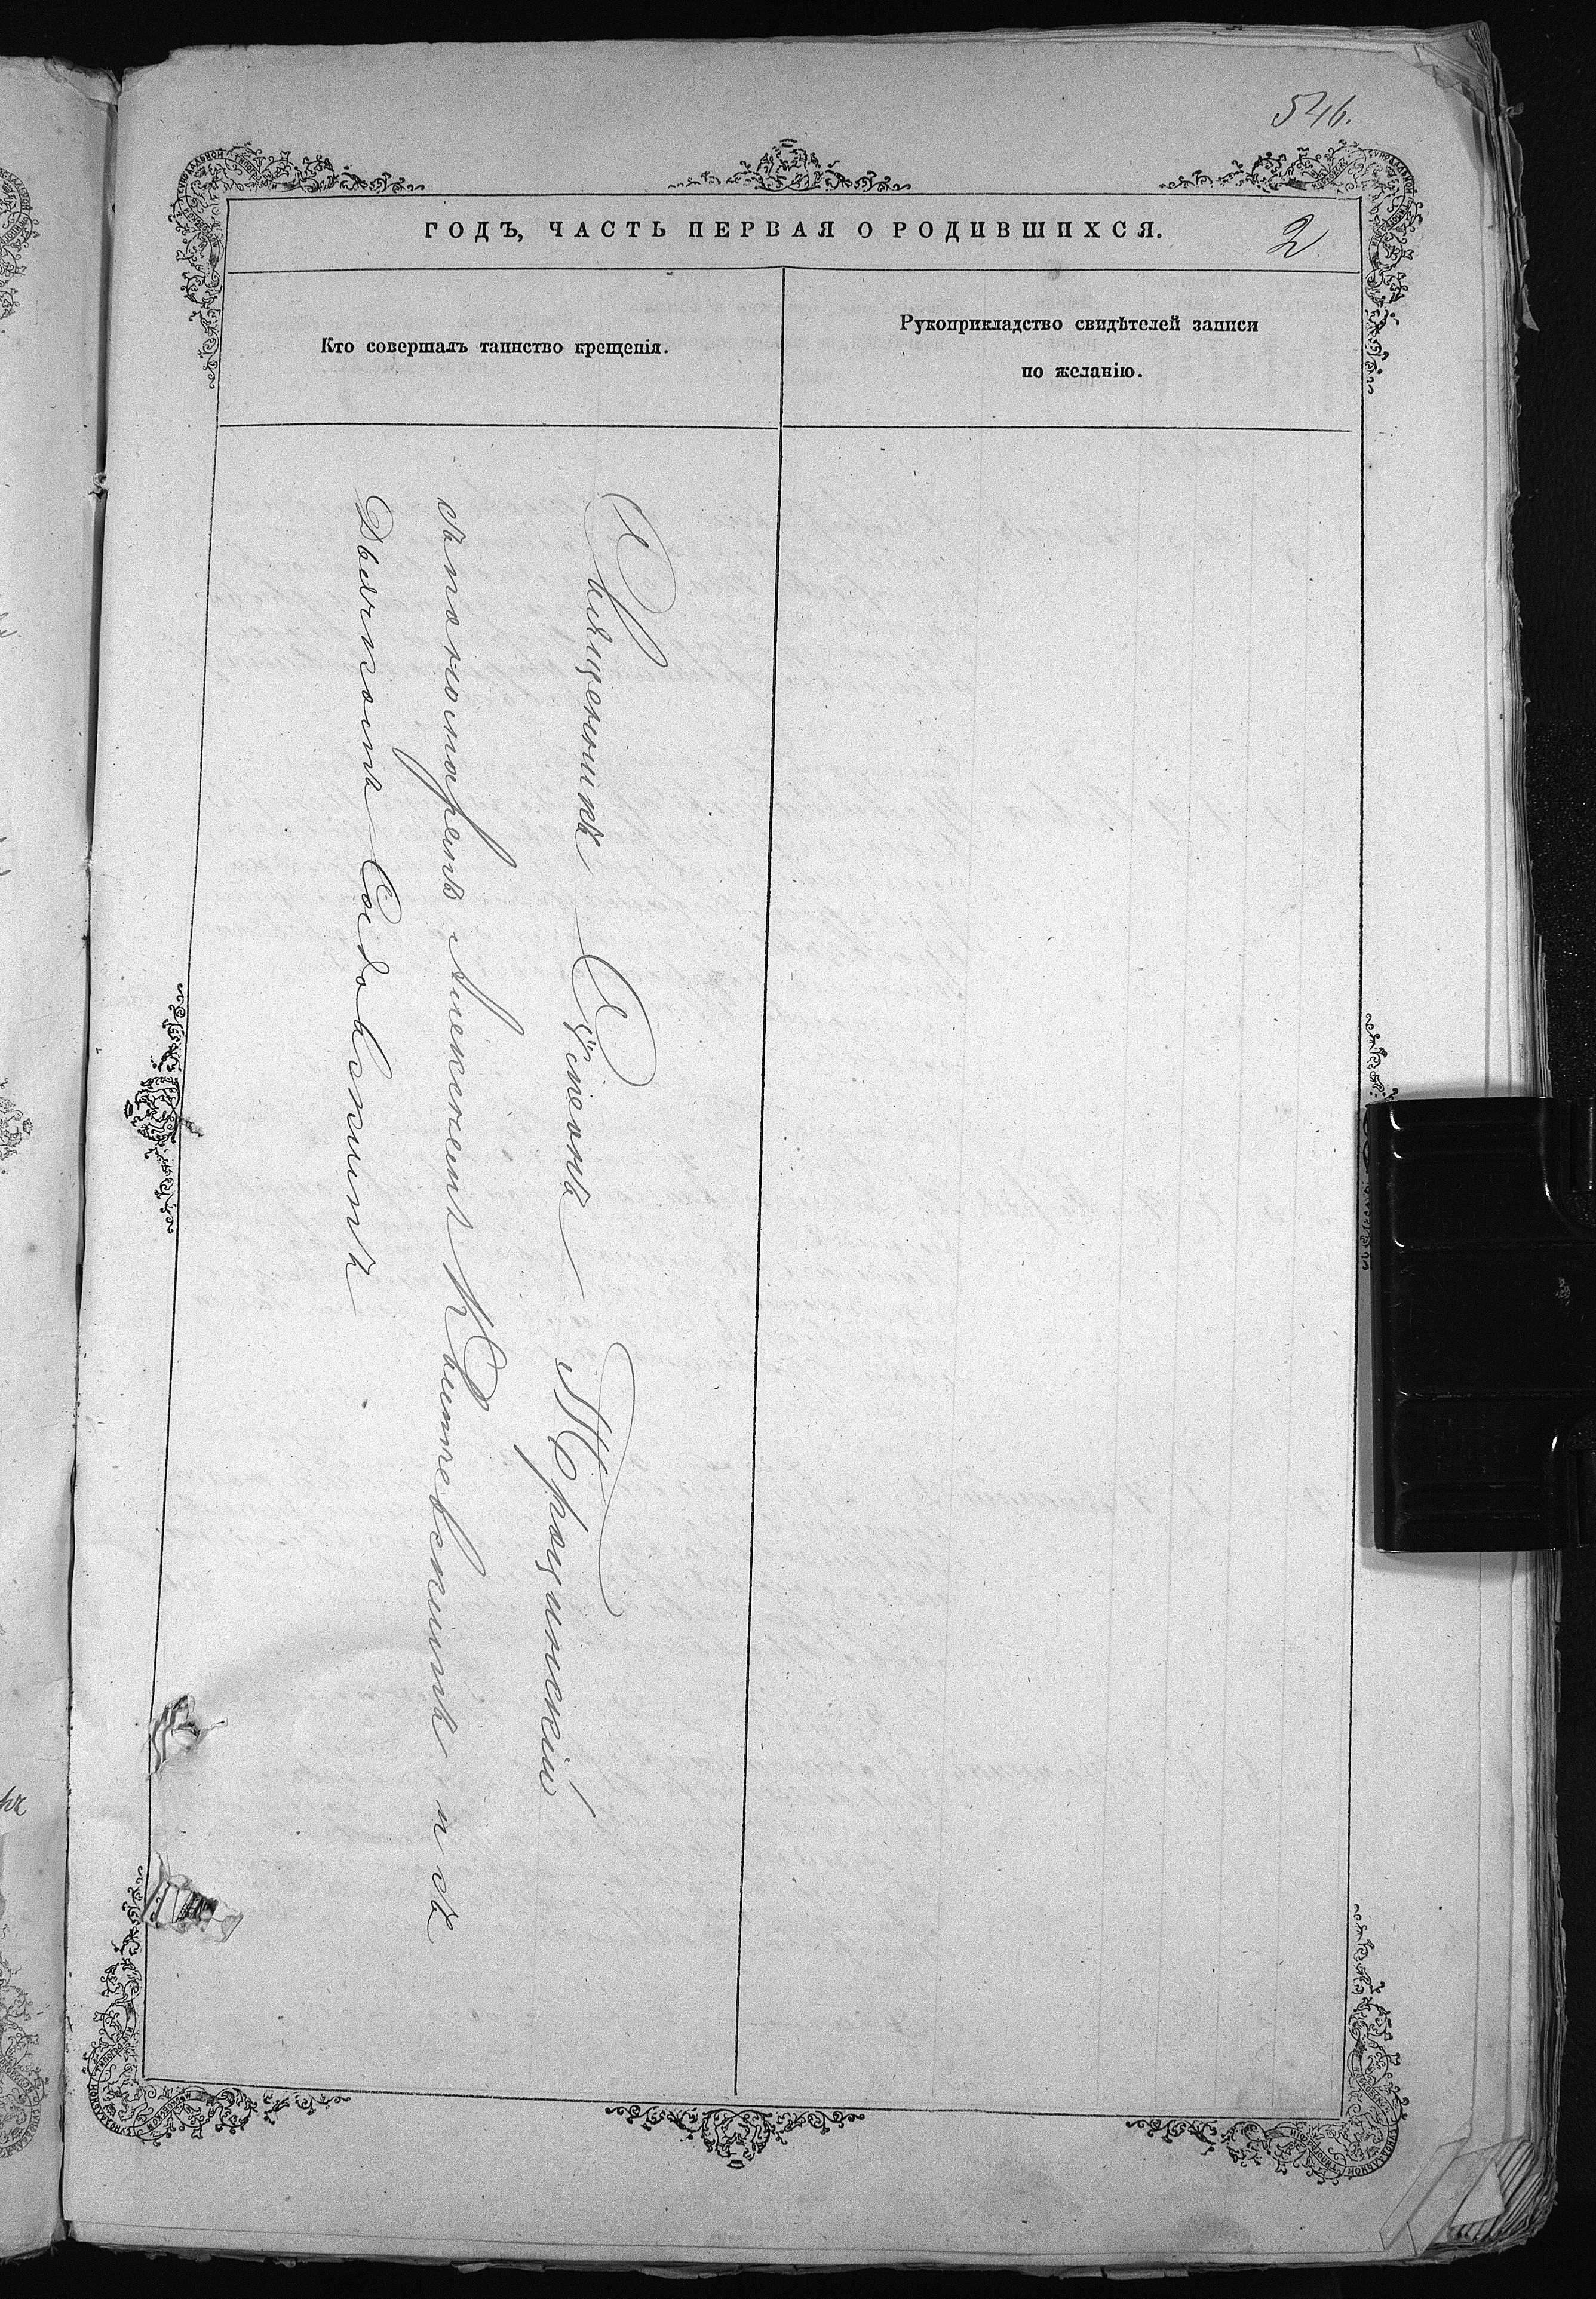 546.
ГОДЪ, ЧАСТЬ ПЕРВАЯ О РОДИВШИХСЯ.
2
Кто совершалъ таинство крещенія.
Рукоприкладство свидѣтелей записи
по желанію.
Священникъ Сүмеонъ Троцинскій
съ пономаремъ Алексѣемъ Квитевскимъ и съ
Дьячкомъ Садовскимъ